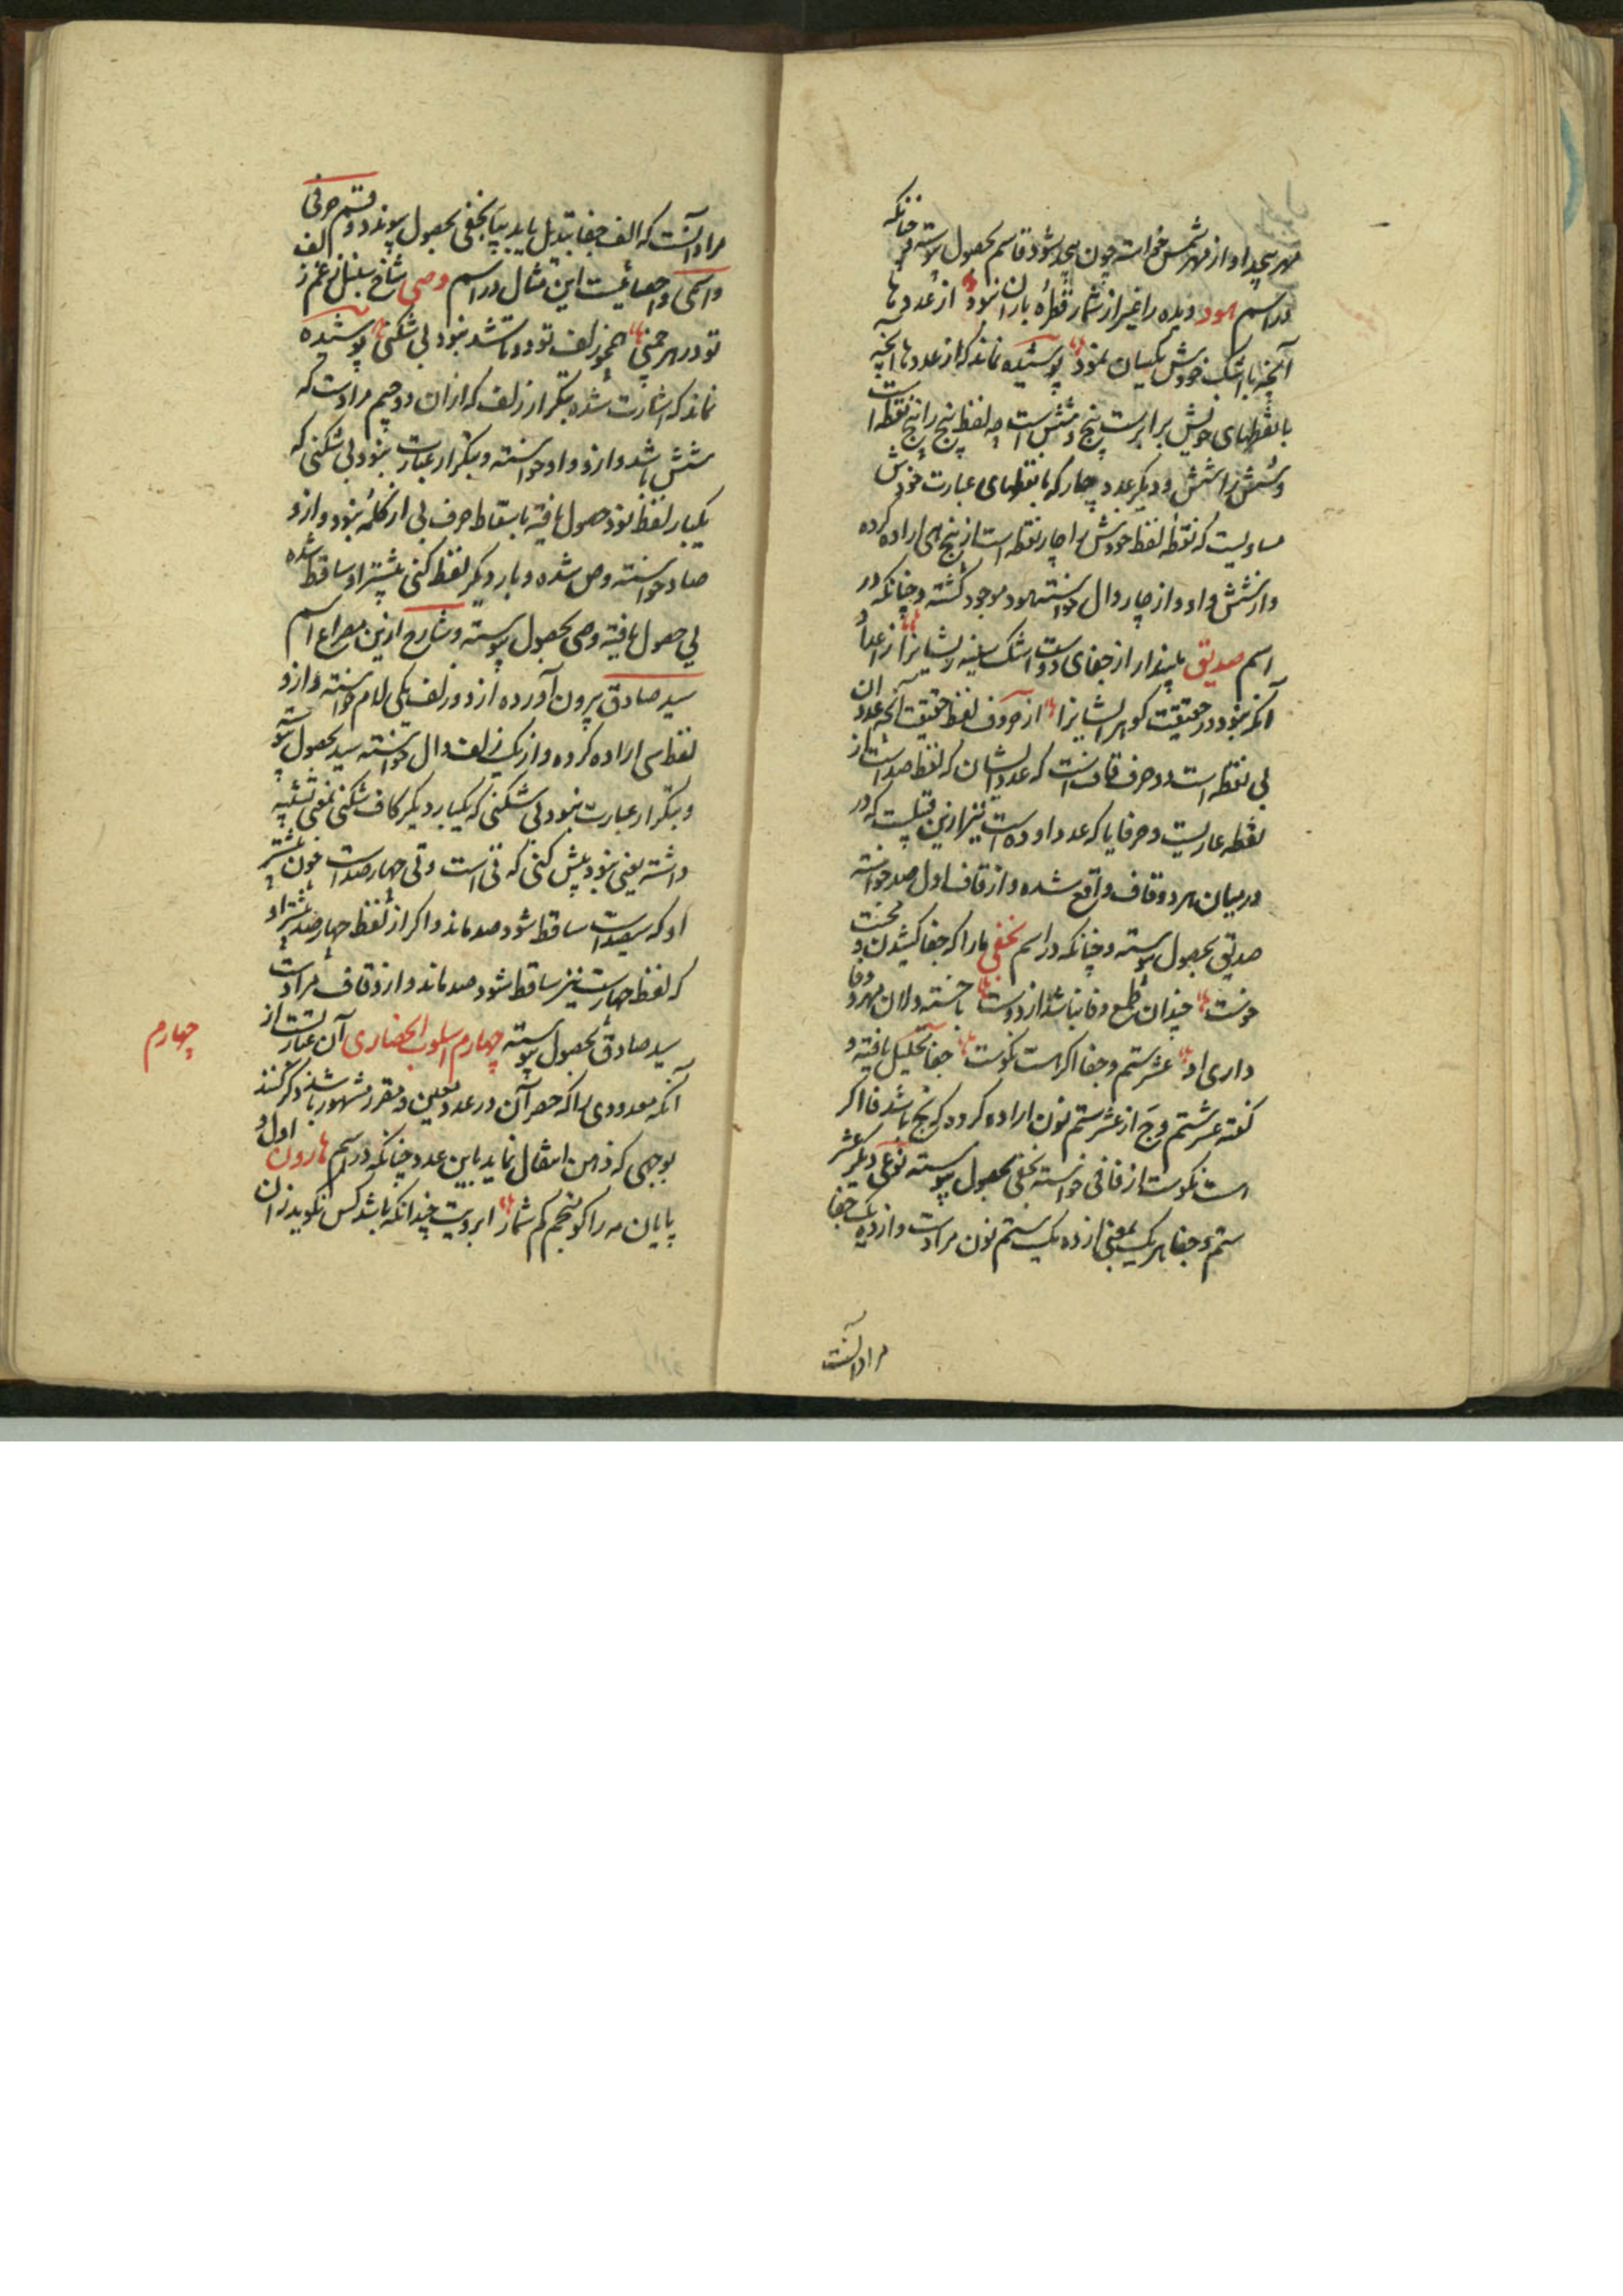 مهر بیحد او از مهر شمس خواسته چون بیحد شود قاسم بحصول پیوسته و چنانکه
در اسم هود دیده را غیر از شمار قطرهٔ باران نبود از عددها
آنچه با اشک خودش یکسان نمود پوشیده نماند که از عددها آنچه
با نقطهای خویش برابرست پنج و شش است چه لفظ پنج را پنج نقطه است
و شش را شش و دیگر عدد چار که با نقطهای عبارت خودش
مساویست که نقطهٔ لفظ خودش را چار نقطه است از پنج های اراده کرده
و از شش واو و از چار دال خواسته هود موجود گشته و چنانکه در
اسم صدیق پندار از جفای دوست اشک سینه ریشانرا از اعدا
آنکه نبود در حقیقت گوهر ایشانرا از حروف لفظ حقیقت آنچه عدد آن
بی نقطه است دو حرف قافست که عدد ایشان که لفظ صد است از
نقطه عاریست و حرف یا که عدد او ده است نیز ازین قبیلست که در
درمیان هر دو قاف واقع شده و از قاف اول صد خواسته
صدیق بحصول پیوسته و چنانکه در اسم نجفی ما را که جفا کشیدن و محنت
خوست چندان طمع وفا نباشد از دوست با خسته دلان مهر و وفا
داری او عشر ستم و جفا اگر هست نکوست جفا تحلیل یافته و
گفته عشر ستم و ج از عشر ستم نون اراده کرده که نج باشد فا اگر
است نکوست از فا فی خواسته نجفی بحصول پیوسته نوعی دیگر عشر
ستم و جفا هر یک بمعنی از ده یک ستم نون مرادست و از ده یک جفا
مراد آنست
مراد آنست که الف جفا تبدیل یابد بیا نجفی بحصول پیوندد و قسم حرفی
و اسمی و احصائیست این مثال در اسم وصی شاخ سنبل از غم زلف
تو در هر چمنی همچو زلف تو دو تا شد نبود بی شکنی پوشیده
نماند که اشارت شده بتکرار زلف که از آن دو جیم مرادست که
شش باشد و ازو واو خواسته و بتکرار عبارت نبود بی شکنی که
یکبار لفظ نود حصول یافته باسقاط حرف بی از کلمهٔ نبود و ازو
صاد خواسته وص شده و بار دیگر لفظ کنی بیشتر او ساقط شده
بی حصول یافته وصی بحصول پیوسته و شارح ازین مصراع اسم
سید صادق بیرون آورده از دو زلف یکی لام خواسته و ازو
لفظ سی اراده کرده و از یک زلف دال خواسته سید بحصول پیوسته
و بتکرار عبارت نبود بی شکنی که یکبار دیگر کاف شکنی بمعنی تشبیه
داشته یعنی نبود بیش کنی که نی است و تی چهارصد است چون بیشتر
او که سیصدست ساقط شود صد ماند و اگر از لفظ چهارصد بیشتر او
که لفظ چهارست نیز ساقط شود صد ماند و ازو قاف مرادست
سید صادق بحصول پیوسته چهارم اسلوب انحصاری آن عبارتست از
آنکه معدودی را که حصر آن در عدد معین و مقرر مشهور باشد ذکر کنند
بوجهی که ذهن انتقال نماید باین عدد چنانکه در اسم هارون اول و
پایان مه را گو منجم کم شمار ابرویت چندانکه باشد کس نگوید زان
چهارم